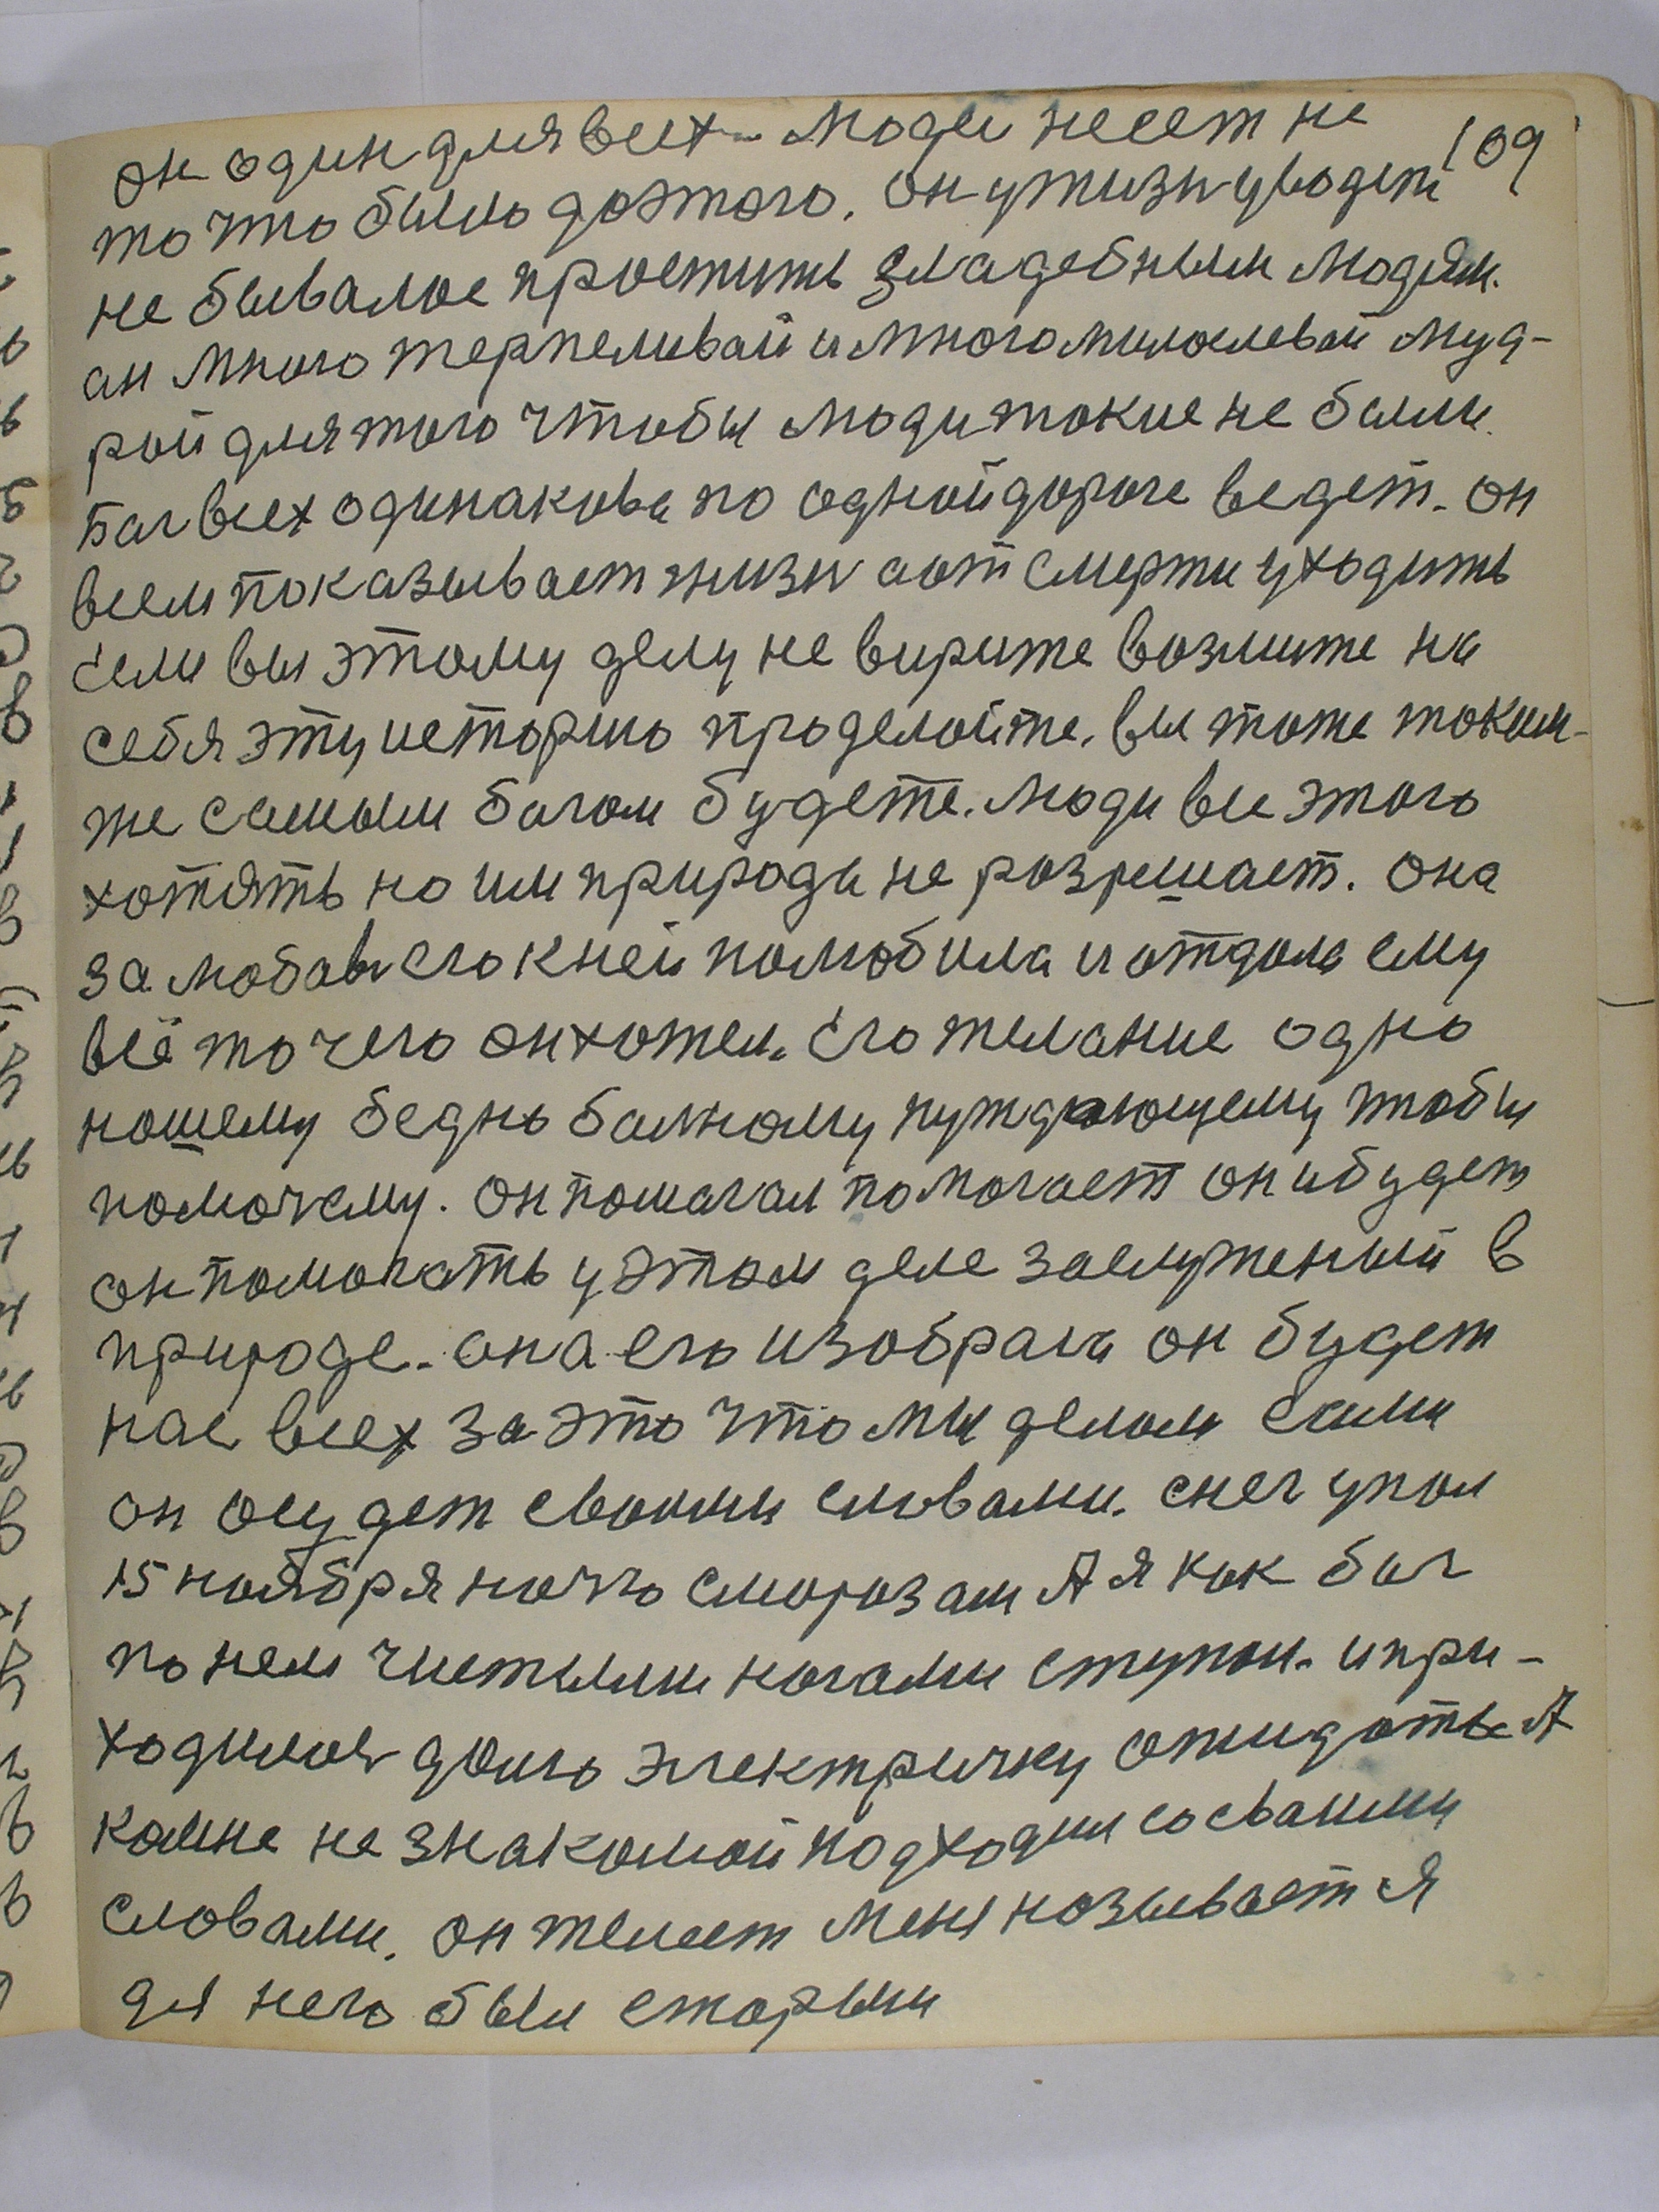 109
он один для всех. Люди несет не
то что было доэтого. он ужизн уводет
не бывалое простить зладебным людям.
он много терпеливай и многомилослевай муд-
рой длятого чтобы люди токие не были.
Бог всех одинакова по одной дороге ведет. он
всем показывает жизн аот смерти уходить
если вы этому делу не вирите возмите на
себя эту историю проделойте. вы тоже токим-
же самым богом будете. Люди все этого
хотять но им природа не розрешает. Она
за любовь его к ней полюбила и отдола ему
всё то чего он хотел. Его желание одно
ношему бедно болному нуждающему чтобы
помоч ему. Он помагал помогает он и будет
он помогать у этом деле заслуженый в
природе. она его изобрала он будет
нас всех за это что мы делом сами
он осудет своими словами. снег упол
15 ноября ночъю сморозам А я как бог
по нем чистыми ногами ступол. и при-
ходилось долго электричку ожидоть. А
комне не знакомой подходил со своими
словами. он желает меня нозывает я
для него был сторым